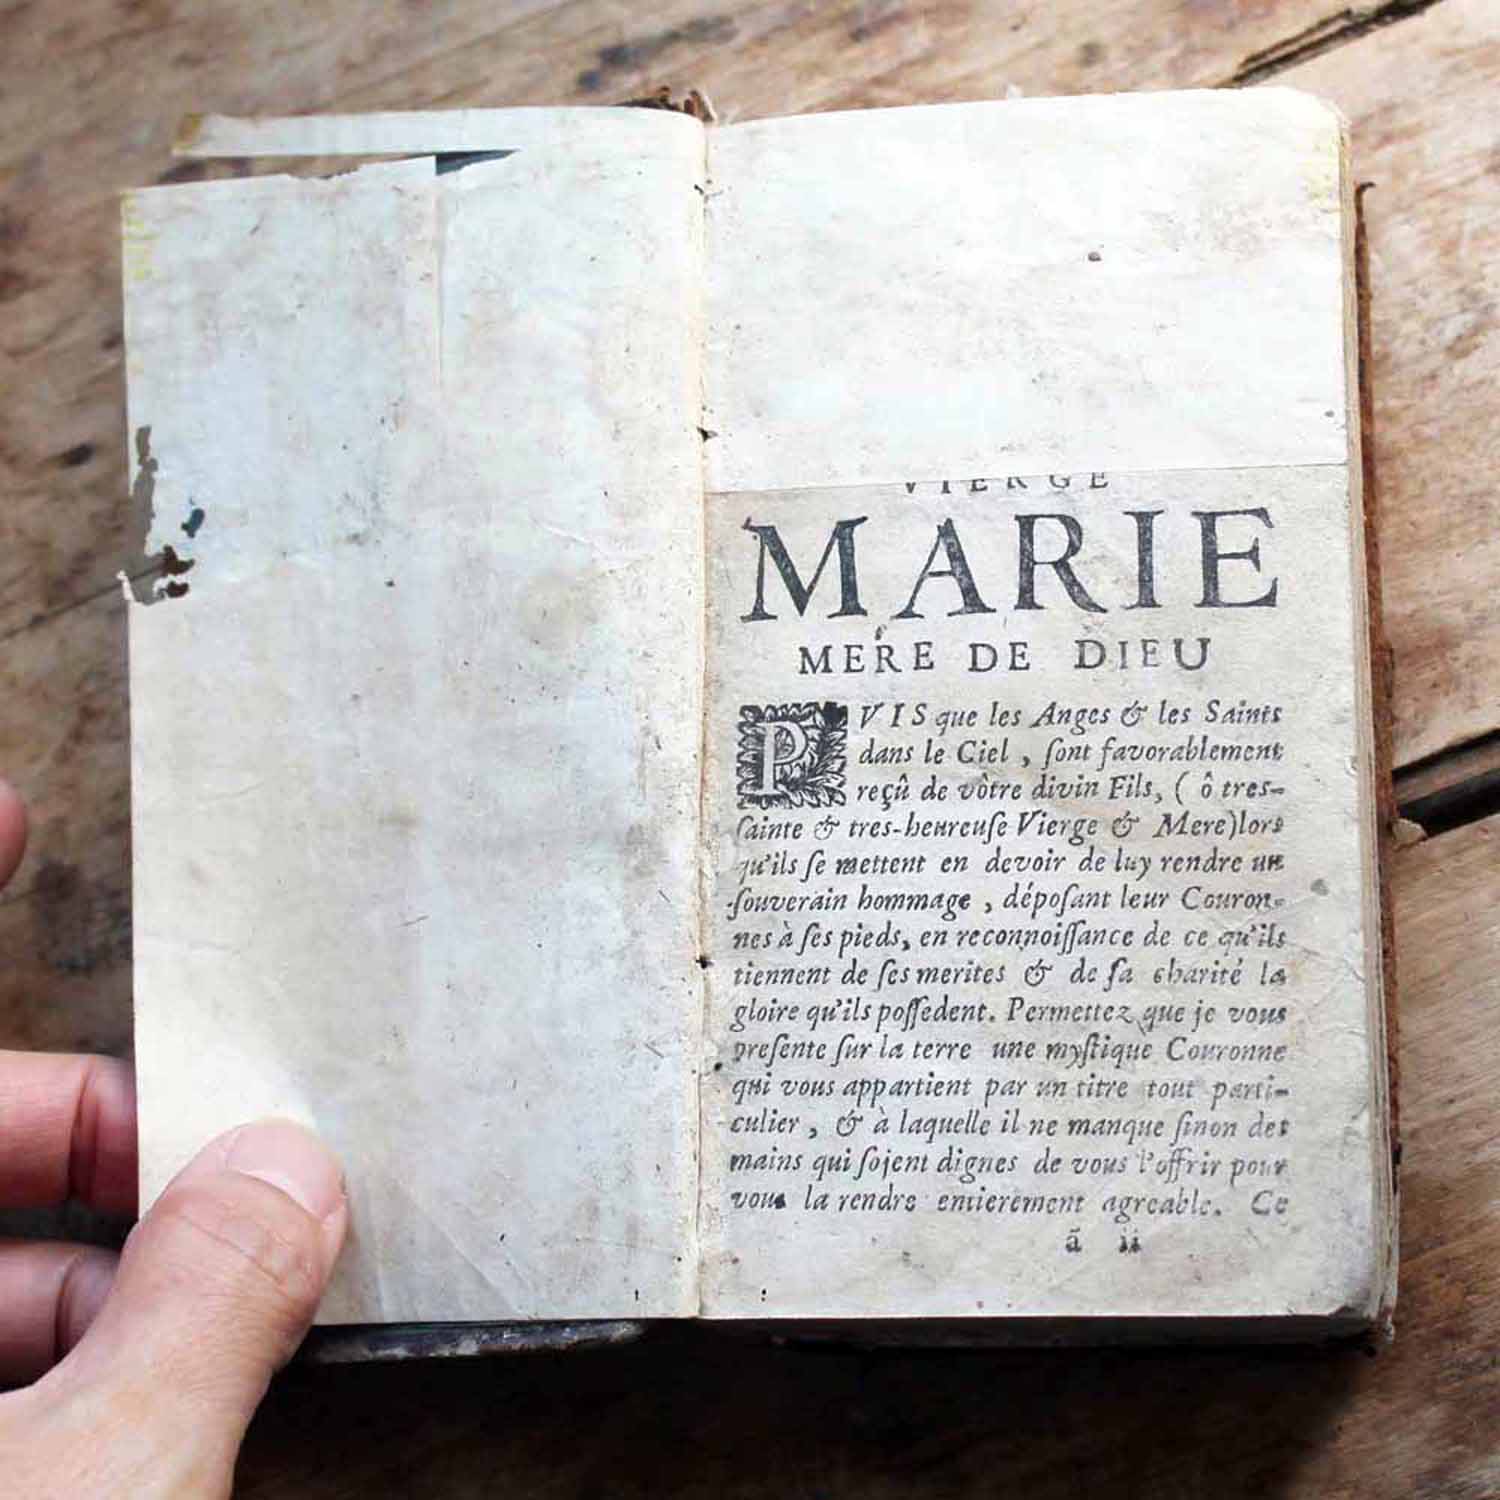 VIERGE
MARIE
MERE DE DIEU
PVIS que les Anges & les Saints
dans le Ciel , ſont favorablement
reçû de vôtre divin Fils, ( ô tres-
ſainte & tres-heureuſe Vierge & Mere)lors
qu'ils ſe mettent en devoir de luy rendre un
ſouverain hommage , dépoſant leur Couron-
nes à ſes pieds, en reconnoiſſance de ce qu'ils
tiennent de ſes merites & de ſa charité la
gloire qu'ils poſſedent. Permettez que je vous
preſente ſur la terre une myſtique Couronne
qui vous appartient par un titre tout parti-
culier , & à laquelle il ne manque ſinon des
mains qui ſojent dignes de vous l'offrir pour
vous la rendre entierement agreable. Ce
ã ii